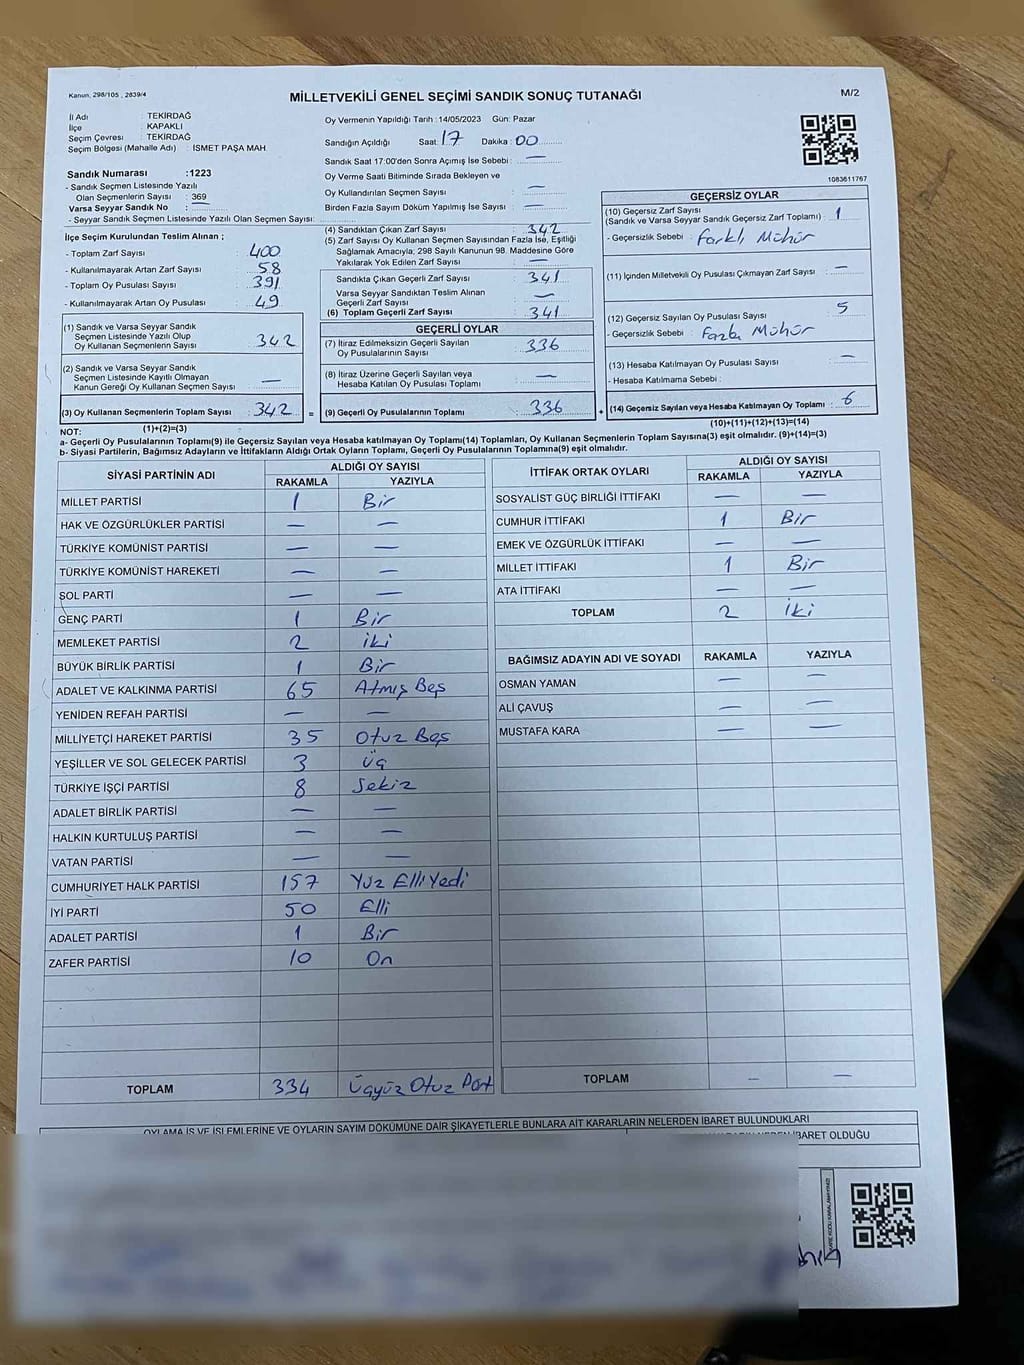 Kanun, 298/105 , 2839/4
MİLLETVEKİLİ GENEL SEÇİMİ SANDIK SONUÇ TUTANAĞI
M/2
İl Adı : TEKİRDAĞ
İlçe : KAPAKLI
Seçim Çevresi : TEKİRDAĞ
Seçim Bölgesi (Mahalle Adı) : İSMET PAŞA MAH.
Sandık Numarası :1223
- Sandık Seçmen Listesinde Yazılı
Olan Seçmenlerin Sayısı : 369
Varsa Seyyar Sandık No : —
- Seyyar Sandık Seçmen Listesinde Yazılı Olan Seçmen Sayısı:
Oy Vermenin Yapıldığı Tarih :14/05/2023 Gün: Pazar
Sandığın Açıldığı Saat: 17 Dakika : 00
Sandık Saat 17:00'den Sonra Açımış İse Sebebi : —
Oy Verme Saati Bitiminde Sırada Bekleyen ve
Oy Kullandırılan Seçmen Sayısı : —
Birden Fazla Sayım Döküm Yapılmış İse Sayısı : —
1083611767
İlçe Seçim Kurulundan Teslim Alınan ;
- Toplam Zarf Sayısı : 400
- Kullanılmayarak Artan Zarf Sayısı : 58
- Toplam Oy Pusulası Sayısı : 391
- Kullanılmayarak Artan Oy Pusulası : 49
(1) Sandık ve Varsa Seyyar Sandık
Seçmen Listesinde Yazılı Olup
Oy Kullanan Seçmenlerin Sayısı : 342
(2) Sandık ve Varsa Seyyar Sandık
Seçmen Listesinde Kayıtlı Olmayan
Kanun Gereği Oy Kullanan Seçmen Sayısı : —
(3) Oy Kullanan Seçmenlerin Toplam Sayısı : 342 =
(1)+(2)=(3)
(4) Sandıktan Çıkan Zarf Sayısı : 342
(5) Zarf Sayısı Oy Kullanan Seçmen Sayısından Fazla İse, Eşitliği
Sağlamak Amacıyla, 298 Sayılı Kanunun 98. Maddesine Göre
Yakılarak Yok Edilen Zarf Sayısı : —
Sandıkta Çıkan Geçerli Zarf Sayısı : 341
Varsa Seyyar Sandıktan Teslim Alınan
Geçerli Zarf Sayısı : —
(6) Toplam Geçerli Zarf Sayısı : 341
GEÇERLİ OYLAR
(7) İtiraz Edilmeksizin Geçerli Sayılan
Oy Pusulalarının Sayısı : 336
(8) İtiraz Üzerine Geçerli Sayılan veya
Hesaba Katılan Oy Pusulası Toplamı : —
(9) Geçerli Oy Pusulalarının Toplamı : 336 +
GEÇERSİZ OYLAR
(10) Geçersiz Zarf Sayısı
(Sandık ve Varsa Seyyar Sandık Geçersiz Zarf Toplamı) : 1
- Geçersizlik Sebebi : Farklı Mühür
(11) İçinden Milletvekili Oy Pusulası Çıkmayan Zarf Sayısı : —
(12) Geçersiz Sayılan Oy Pusulası Sayısı : 5
- Geçersizlik Sebebi : Fazla Mühür
(13) Hesaba Katılmayan Oy Pusulası Sayısı : —
- Hesaba Katılmama Sebebi :
(14) Geçersiz Sayılan veya Hesaba Katılmayan Oy Toplamı : 6
(10)+(11)+(12)+(13)=(14)
NOT:
a- Geçerli Oy Pusulalarının Toplamı(9) ile Geçersiz Sayılan veya Hesaba katılmayan Oy Toplamı(14) Toplamları, Oy Kullanan Seçmenlerin Toplam Sayısına(3) eşit olmalıdır. (9)+(14)=(3)
b- Siyasi Partilerin, Bağımsız Adayların ve İttifakların Aldığı Ortak Oyların Toplamı, Geçerli Oy Pusulalarının Toplamına(9) eşit olmalıdır.
SİYASİ PARTİNİN ADI ALDIĞI OY SAYISI
RAKAMLA YAZIYLA
MİLLET PARTİSİ 1 Bir
HAK VE ÖZGÜRLÜKLER PARTİSİ — —
TÜRKİYE KOMÜNİST PARTİSİ — —
TÜRKİYE KOMÜNİST HAREKETİ — —
SOL PARTİ — —
GENÇ PARTİ 1 Bir
MEMLEKET PARTİSİ 2 iki
BÜYÜK BİRLİK PARTİSİ 1 Bir
ADALET VE KALKINMA PARTİSİ 65 Atmış Beş
YENİDEN REFAH PARTİSİ — —
MİLLİYETÇİ HAREKET PARTİSİ 35 Otuz Beş
YEŞİLLER VE SOL GELECEK PARTİSİ 3 üç
TÜRKİYE İŞÇİ PARTİSİ 8 Sekiz
ADALET BİRLİK PARTİSİ — —
HALKIN KURTULUŞ PARTİSİ — —
VATAN PARTİSİ — —
CUMHURİYET HALK PARTİSİ 157 Yüz Elli Yedi
İYİ PARTİ 50 Elli
ADALET PARTİSİ 1 Bir
ZAFER PARTİSİ 10 On
TOPLAM 334 Üçyüz Otuz Dört
İTTİFAK ORTAK OYLARI ALDIĞI OY SAYISI
RAKAMLA YAZIYLA
SOSYALİST GÜÇ BİRLİĞİ İTTİFAKI — —
CUMHUR İTTİFAKI 1 Bir
EMEK VE ÖZGÜRLÜK İTTİFAKI — —
MİLLET İTTİFAKI 1 Bir
ATA İTTİFAKI — —
TOPLAM 2 iki
BAĞIMSIZ ADAYIN ADI VE SOYADI RAKAMLA YAZIYLA
OSMAN YAMAN — —
ALİ ÇAVUŞ — —
MUSTAFA KARA — —
TOPLAM — —
OYLAMA İŞ VE İŞLEMLERİNE VE OYLARIN SAYIM DÖKÜMÜNE DAİR ŞİKAYETLERLE BUNLARA AİT KARARLARIN NELERDEN İBARET BULUNDUKLARI
İBARET OLDUĞU